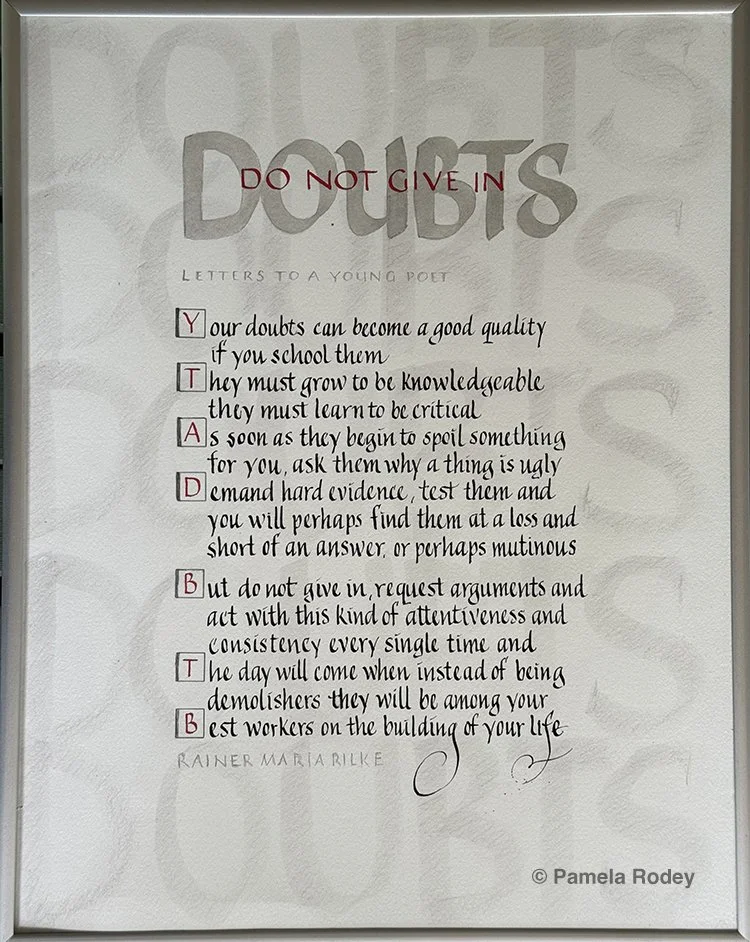 DOUBTS
DOUBTS
DO NOT GIVE IN
DOUBTS
LETTERS TO A YOUNG POET
Your doubts can become a good quality
if you school them
They must grow to be knowledgeable
they must learn to be critical
DOUBTS
As soon as they begin to spoil something
for you, ask them why a thing is ugly
Demand hard evidence, test them and
you will perhaps find them at a loss and
short of an answer, or perhaps mutinous
But do not give in, request arguments and
act with this kind of attentiveness and
consistency every single time and
DOUBTS
The day will come when instead of being
demolishers they will be among your
Best workers on the building of your life
RAINER MARIA RILKE
DOUBTS
© Pamela Rodey